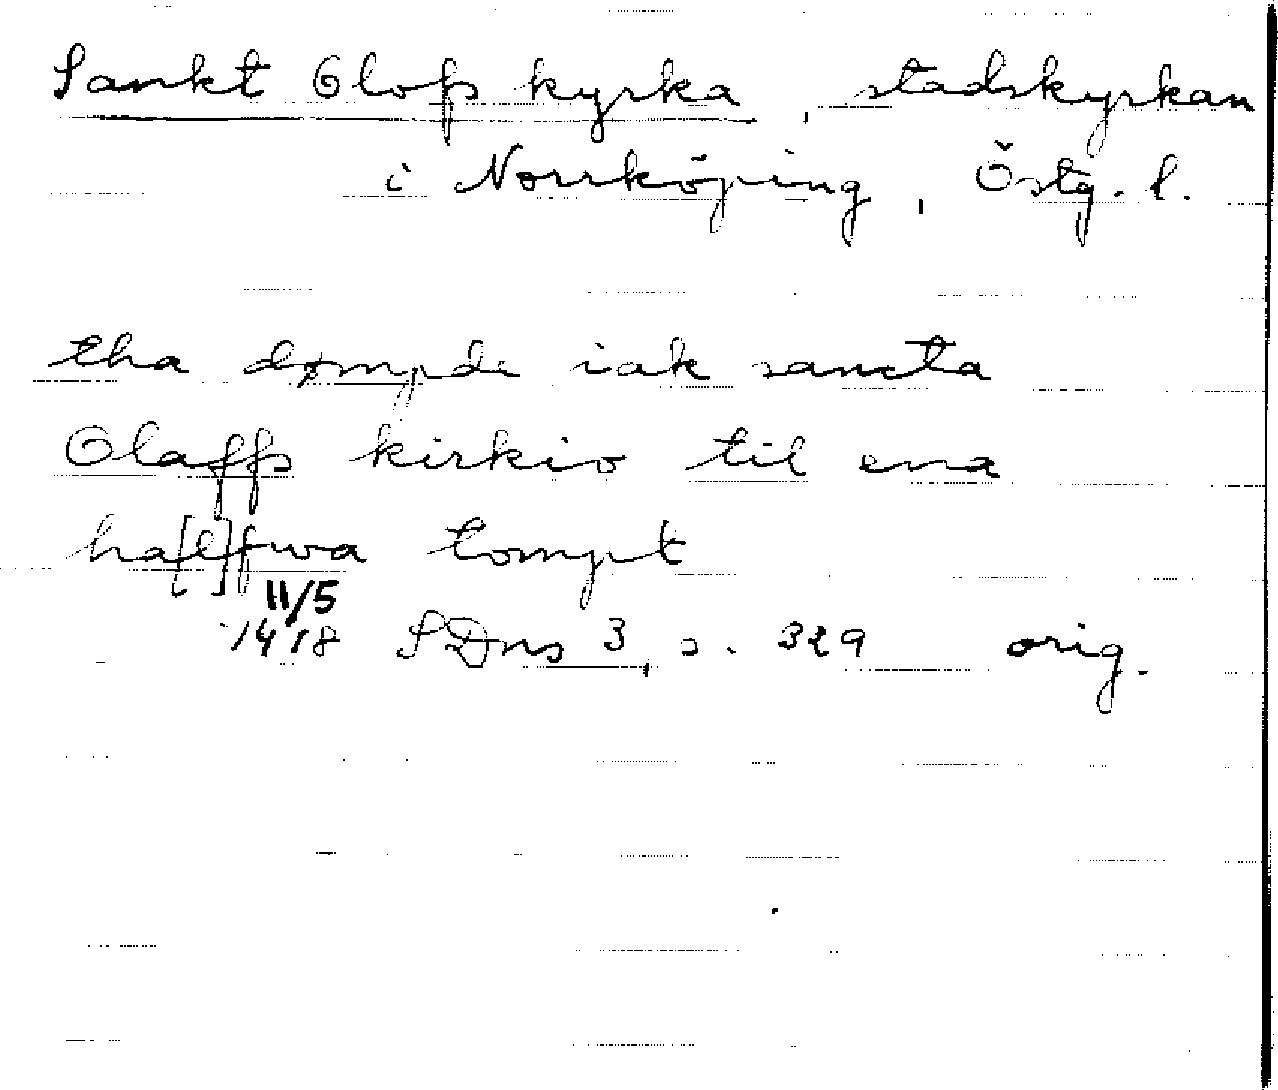 Sankt Olofs kyrka, stadskyrkan
i Norrköping, Östg. l.
tha dømpde iak sancta
Olaffs kirkio til ena
ha[l]fwa tompt
11/5
1418 SDns 3, s. 329 orig.